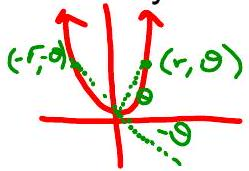 (-r,-θ) (r,θ)
θ
-θ